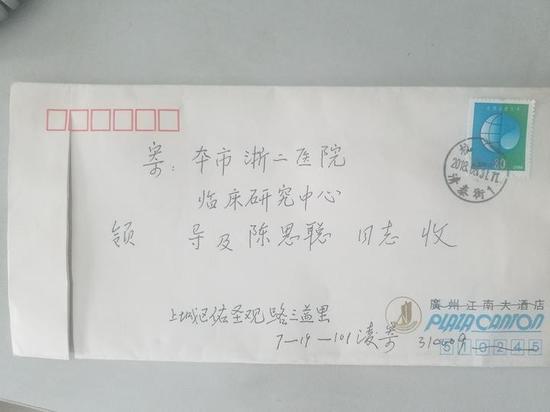 80
2018
寄：本市浙二医院
临床研究中心
领 导及陈思聪 同志 收
上城区佑圣观路三益里
7—19—101凌寄 310009
廣州江南大酒店
PLAZA CANTON
510245